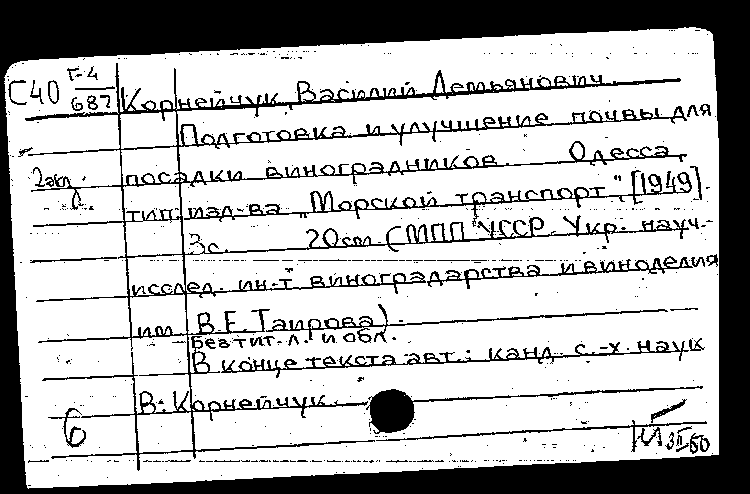 С40 Г-4/687
Корнейчук, Василий Демьянович.
Подготовка и улучшение почвы для
посадки виноградников. Одесса,
тип. изд-ва "Морской транспорт", [1949].
3с. 20см (МПП УССР. Укр. науч.-
исслед. ин-т виноградарства и виноделия
им В.Е. Таирова).
Без тит. л. и обл.
В конце текста авт.: канд. с.-х. наук
В: Корнейчук.
6